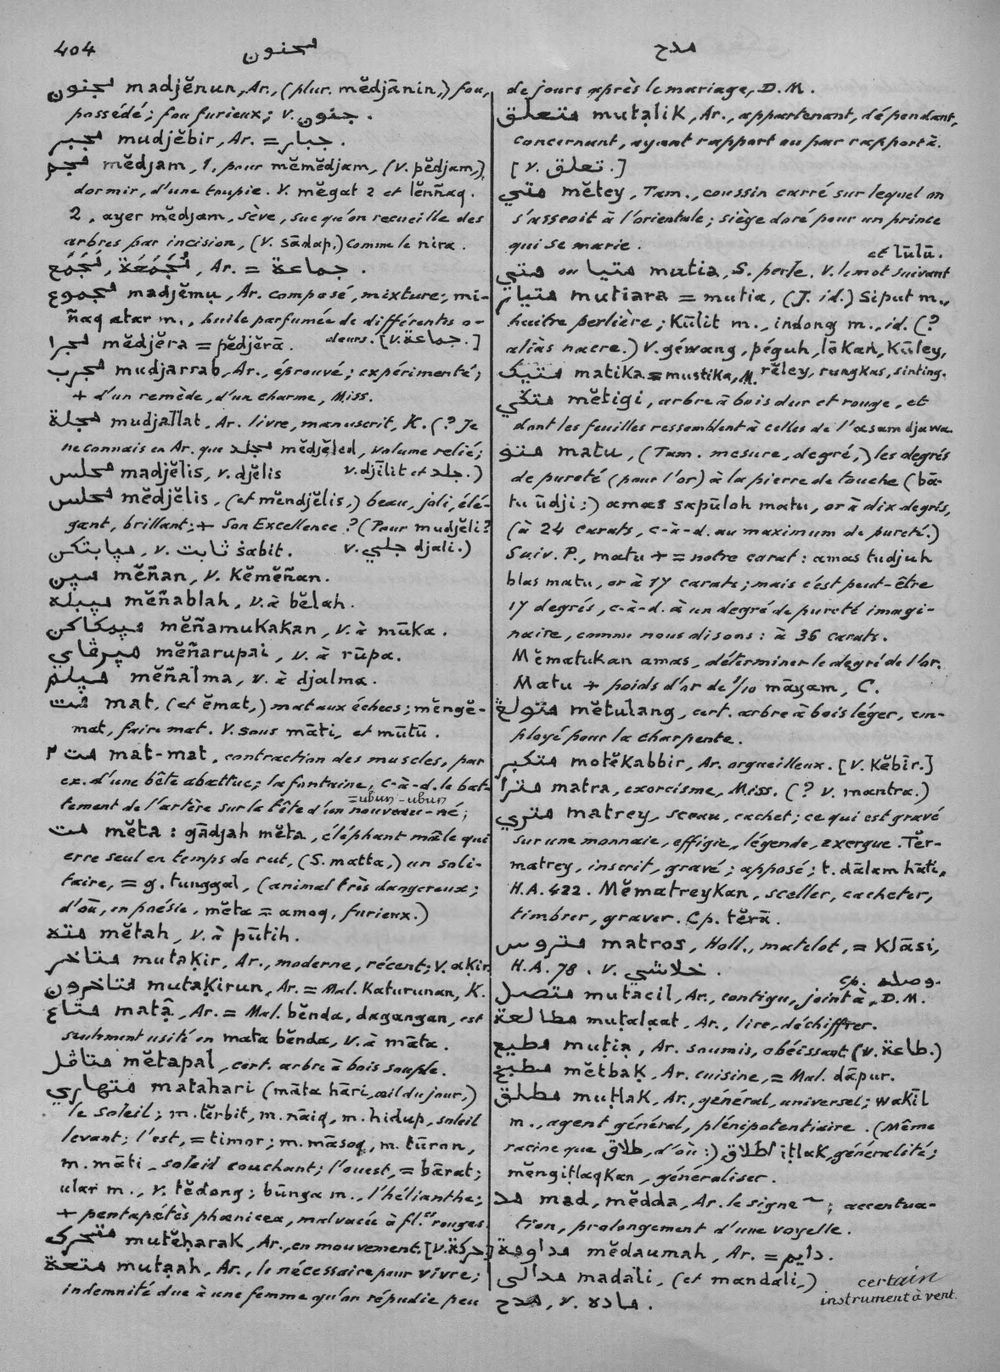 404
مجنون
مدح
مجنون madjĕnun, Ar., (plur. mĕdjānin,) fou,
possédé; fou furieux; v. جنون.
مجبر mudjĕbir, Ar. = جبار.
مجم mĕdjam, 1, pour mĕmĕdjam, (v. pĕdjam,)
dormir, d'une toupie. V. mĕgat 2 et lĕnñaq.
2, ayer mĕdjam, sève, suc qu'on recueille des
arbres par incision, (v. sādap,) comme le nira.
Ar. = جماعة.
مجموع madjĕmu, Ar. composé, mixture; mi-
ñaq atar m., huile parfumée de différentes o-
deurs. [v. جماعة.]
مجرا mĕdjĕra = pĕdjĕrā.
مجرب mudjarrab, Ar., éprouvé; expérimenté;
+ d'un remède, d'un charme, Miss.
مجلة mudjallat, Ar. livre, manuscrit, K. (? Je
ne connais en Ar. que مجلد mĕdjĕled, volume relié;
v. djīlit et جلد.)
مجلس madjĕlis, v. djĕlis
مجلس mĕdjĕlis, (et mĕndjĕlis,) beau, joli, élé-
gant, brillant; + Son Excellence? (Pour mudjĕli?
v. جلي djali.)
ميابتكن, v. ثابت sabit.
مين mĕñan, v. Kĕmĕñan.
ميبله mĕñablah, v. à bĕlah.
ميمكاكن mĕñamukakan, v. à mūka.
ميرڤاي mĕñarupai, v. à rūpa.
ميلم mĕñalma, v. à djalma.
مت mat, (et ĕmat,) mat aux échecs; mĕngĕ-
mat, faire mat. V. sous māti, et mūtū.
مت ٢ mat-mat, contraction des muscles, par
ex. d'une bête abattue; la fontaine, c-à-d. le bat-
= ubun-ubun
tement de l'artère sur la tête d'un nouveau-né;
مت mĕta: gādjah mĕta, éléphant mâle qui
erre seul en temps de rut, (S. matta,) un soli-
taire, = g. tunggal, (animal très dangereux;
d'où, en poésie, mĕta = amoq, furieux.)
مته mĕtah, v. à pūtih.
متاخر mutaḳir, Ar., moderne, récent; v. aḳir
متاخرون mutaḳirun, Ar. = Mal. Katurunan, K.
متاع matā, Ar. = Mal. bĕnda, dagangan, est
seulment usité en mata bĕnda, v. à māta.
متاڤل mĕtapal, cert. arbre à bois souple.
متهاري matahari (māta hāri, œil du jour,)
le soleil; m. tĕrbit, m. nāiq, m. hidup, soleil
levant; l'est, = timor; m. māsoq, m. tūron,
m. māti, soleil couchant; l'ouest, = bārat;
ular m., v. tĕdong; būnga m., l'hélianthe;
+ pentapétès phœnicea, malvacée à fl.es rouges.
متحرك mutĕharak, Ar., en mouvement. [v. حركة]
متعة mutạah, Ar., le nécessaire pour vivre;
indemnité due à une femme qu'on répudie peu
de jours après le mariage, D. M.
متعلق mutạlik, Ar., appartenant, dépendant,
concernant, ayant rapport ou par rapport à.
[v. تعلق.]
متي mĕtey, Tam., coussin carré sur lequel on
s'asseoit à l'orientale; siège doré pour un prince
qui se marie.
et lūlū.
متي ou متيا mutia, S. perle. V. le mot suivant
متيار mutiara = mutia, (J. id.) Siput m.,
huître perlière; Kūlit m., indong m., id. (?
aliàs nacre.) V. géwang, péguh, lōkan, Kūley,
rĕley, rungkas, sinting.
متيك matika = mustika, M.
متڬي mĕtigi, arbre à bois dur et rouge, et
dont les feuilles ressemblent à celles de l'asam djawa.
متو matu, (Tam. mesure, degré,) les degrés
de pureté (pour l'or) à la pierre de touche (bā-
tu ūdji:) amas sapūloh matu, or à dix degrés,
(à 24 carats, c-à-d. au maximum de pureté.)
Suiv. P., matu + = notre carat: amas tudjuh
blas matu, or à 17 carats; mais c'est peut-être
17 degrés, c-à-d. à un degré de pureté imagi-
naire, comme nous disons: à 36 carats.
Mĕmatukan amas, déterminer le degré de l'or.
Matu + poids d'or de 1/10 māyam, C.
متولڠ mĕtulang, cert. arbre à bois léger, em-
ployé pour la charpente.
متكبر motĕkabbir, Ar. orgueilleux. [v. Kĕbīr.]
مترا matra, exorcisme, Miss. (? v. mantra.)
متري matrey, sceau, cachet; ce qui est gravé
sur une monnaie, effigie, légende, exergue. Tĕr-
matrey, inscrit, gravé; apposé; t. dālam hāti,
H.A. 422. Mĕmatreykan, sceller, cacheter,
timbrer, graver. Cp. tĕrā.
متروس matros, Holl., matelot, = Klāsi,
H.A. 78. v. خلاشي.
Cp. وصله.
متصل mutacil, Ar., contigu, joint à, D. M.
مطالعة mutạlạat, Ar., lire, déchiffrer.
مطيع muṭiạ, Ar. soumis, obéissant (v. طاعة.)
مطبخ mĕtbaḳ, Ar. cuisine, = Mal. dāpur.
مطلق muṭlak, Ar., général, universel; wakīl
m., agent général, plénipotentiaire. (Même
racine que طلاق, d'où:) اطلاق iṭlak, généralité;
mĕngiṭlaqkan, généraliser.
مد mad, mĕdda, Ar. le signe ~; accentua-
tion, prolongement d'une voyelle.
مداومة mĕdaumah, Ar. = دايم.
مدالي madali, (et mandali,) certain
instrument à vent.
مدح, v. مادح.